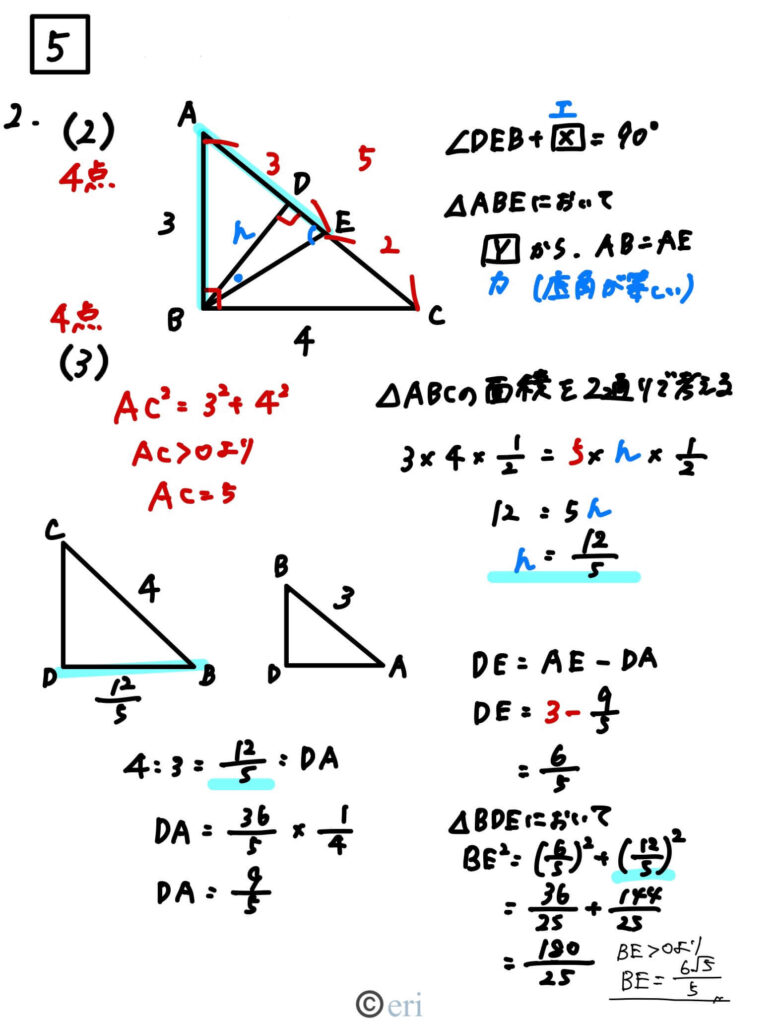 5
2. (2)
4点
A
3
D
5
E
2
3
h
B
C
4
エ
∠DEB + X = 90°
△ABEにおいて
Y から、AB=AE
カ (底角が等しい)
4点
(3)
AC² = 3² + 4²
AC>0より
AC = 5
△ABCの面積を2通りで考える
3 × 4 × 1/2 = 5 × h × 1/2
12 = 5h
h = 12/5
C
4
D
12/5
B
B
3
D
A
4 : 3 = 12/5 : DA
DA = 36/5 × 1/4
DA = 9/5
DE = AE - DA
DE = 3 - 9/5
= 6/5
△BDEにおいて
BE² = (6/5)² + (12/5)²
= 36/25 + 144/25
= 180/25
BE>0より
BE = 6√5/5
©eri